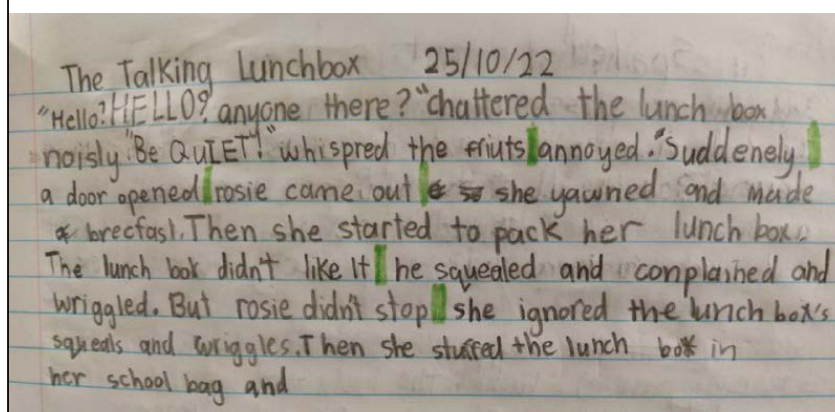 The Talking Lunchbox 25/10/22
"Hello? HELLO? anyone there?" chattered the lunch box
noisly "Be QuIET!" whispred the friuts annoyed. "Suddenely
a door opened rosie came out she yawned and made
brecfast. Then she started to pack her lunch box.
The lunch box didn't like it he squealed and complained and
wriggled. But rosie didn't stop she ignored the lunch box's
squeals and wriggles. Then she stuffed the lunch box in
her school bag and